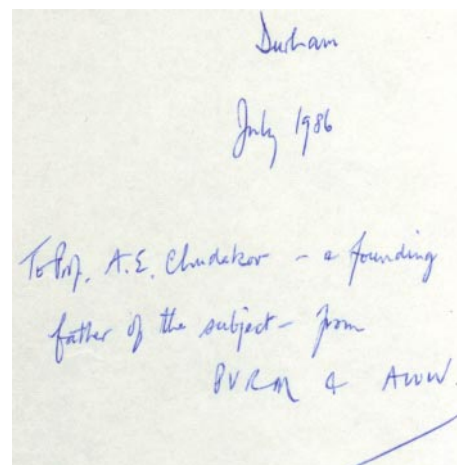 Durham
July 1986
To Prof. A.E. Chudakov - a founding
father of the subject - from
PVRM & AWW.